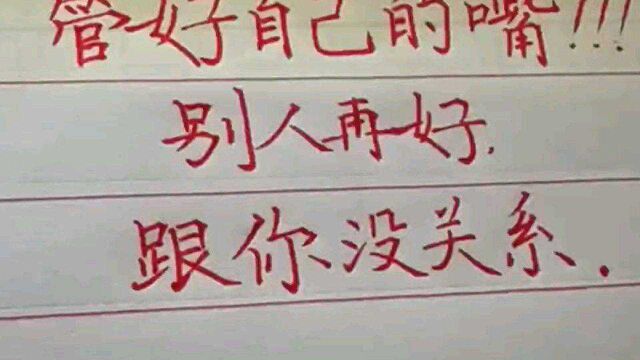 管好自己的嘴!!!
别人再好.
跟你没关系.